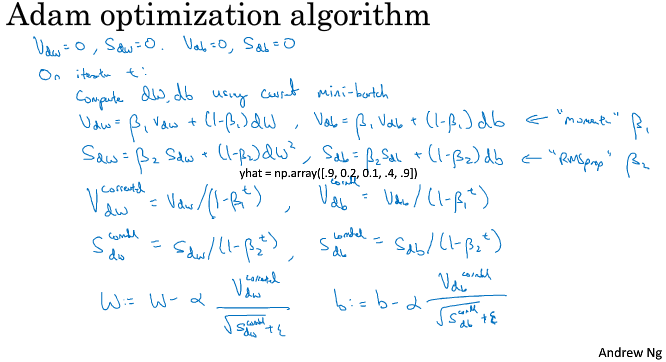 Adam optimization algorithm
V_dw = 0, S_dw = 0. V_db = 0, S_db = 0
On iteration t:
Compute dW, db using current mini-batch
V_dw = β₁ V_dw + (1-β₁) dW, V_db = β₁ V_db + (1-β₁) db ← "moment" β₁
S_dw = β₂ S_dw + (1-β₂) dW², S_db = β₂ S_db + (1-β₂) db ← "RMSprop" β₂
yhat = np.array([.9, 0.2, 0.1, .4, .9])
V_dw^corrected = V_dw/(1-β₁^t), V_db^corrected = V_db/(1-β₁^t)
S_dw^corrected = S_dw/(1-β₂^t), S_db^corrected = S_db/(1-β₂^t)
W := W - α V_dw^corrected/(√S_dw^corrected + ε) b := b - α V_db^corrected/(√S_db^corrected + ε)
Andrew Ng